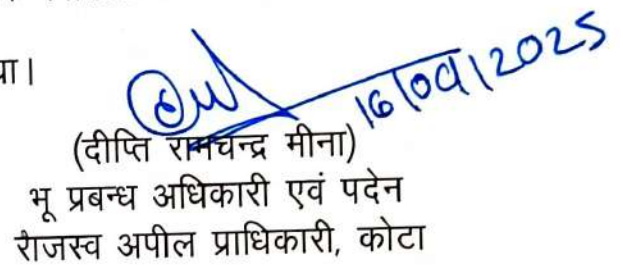 या।
16/09/2025
(दीप्ति रामचन्द्र मीना)
भू प्रबन्ध अधिकारी एवं पदेन
राजस्व अपील प्राधिकारी, कोटा